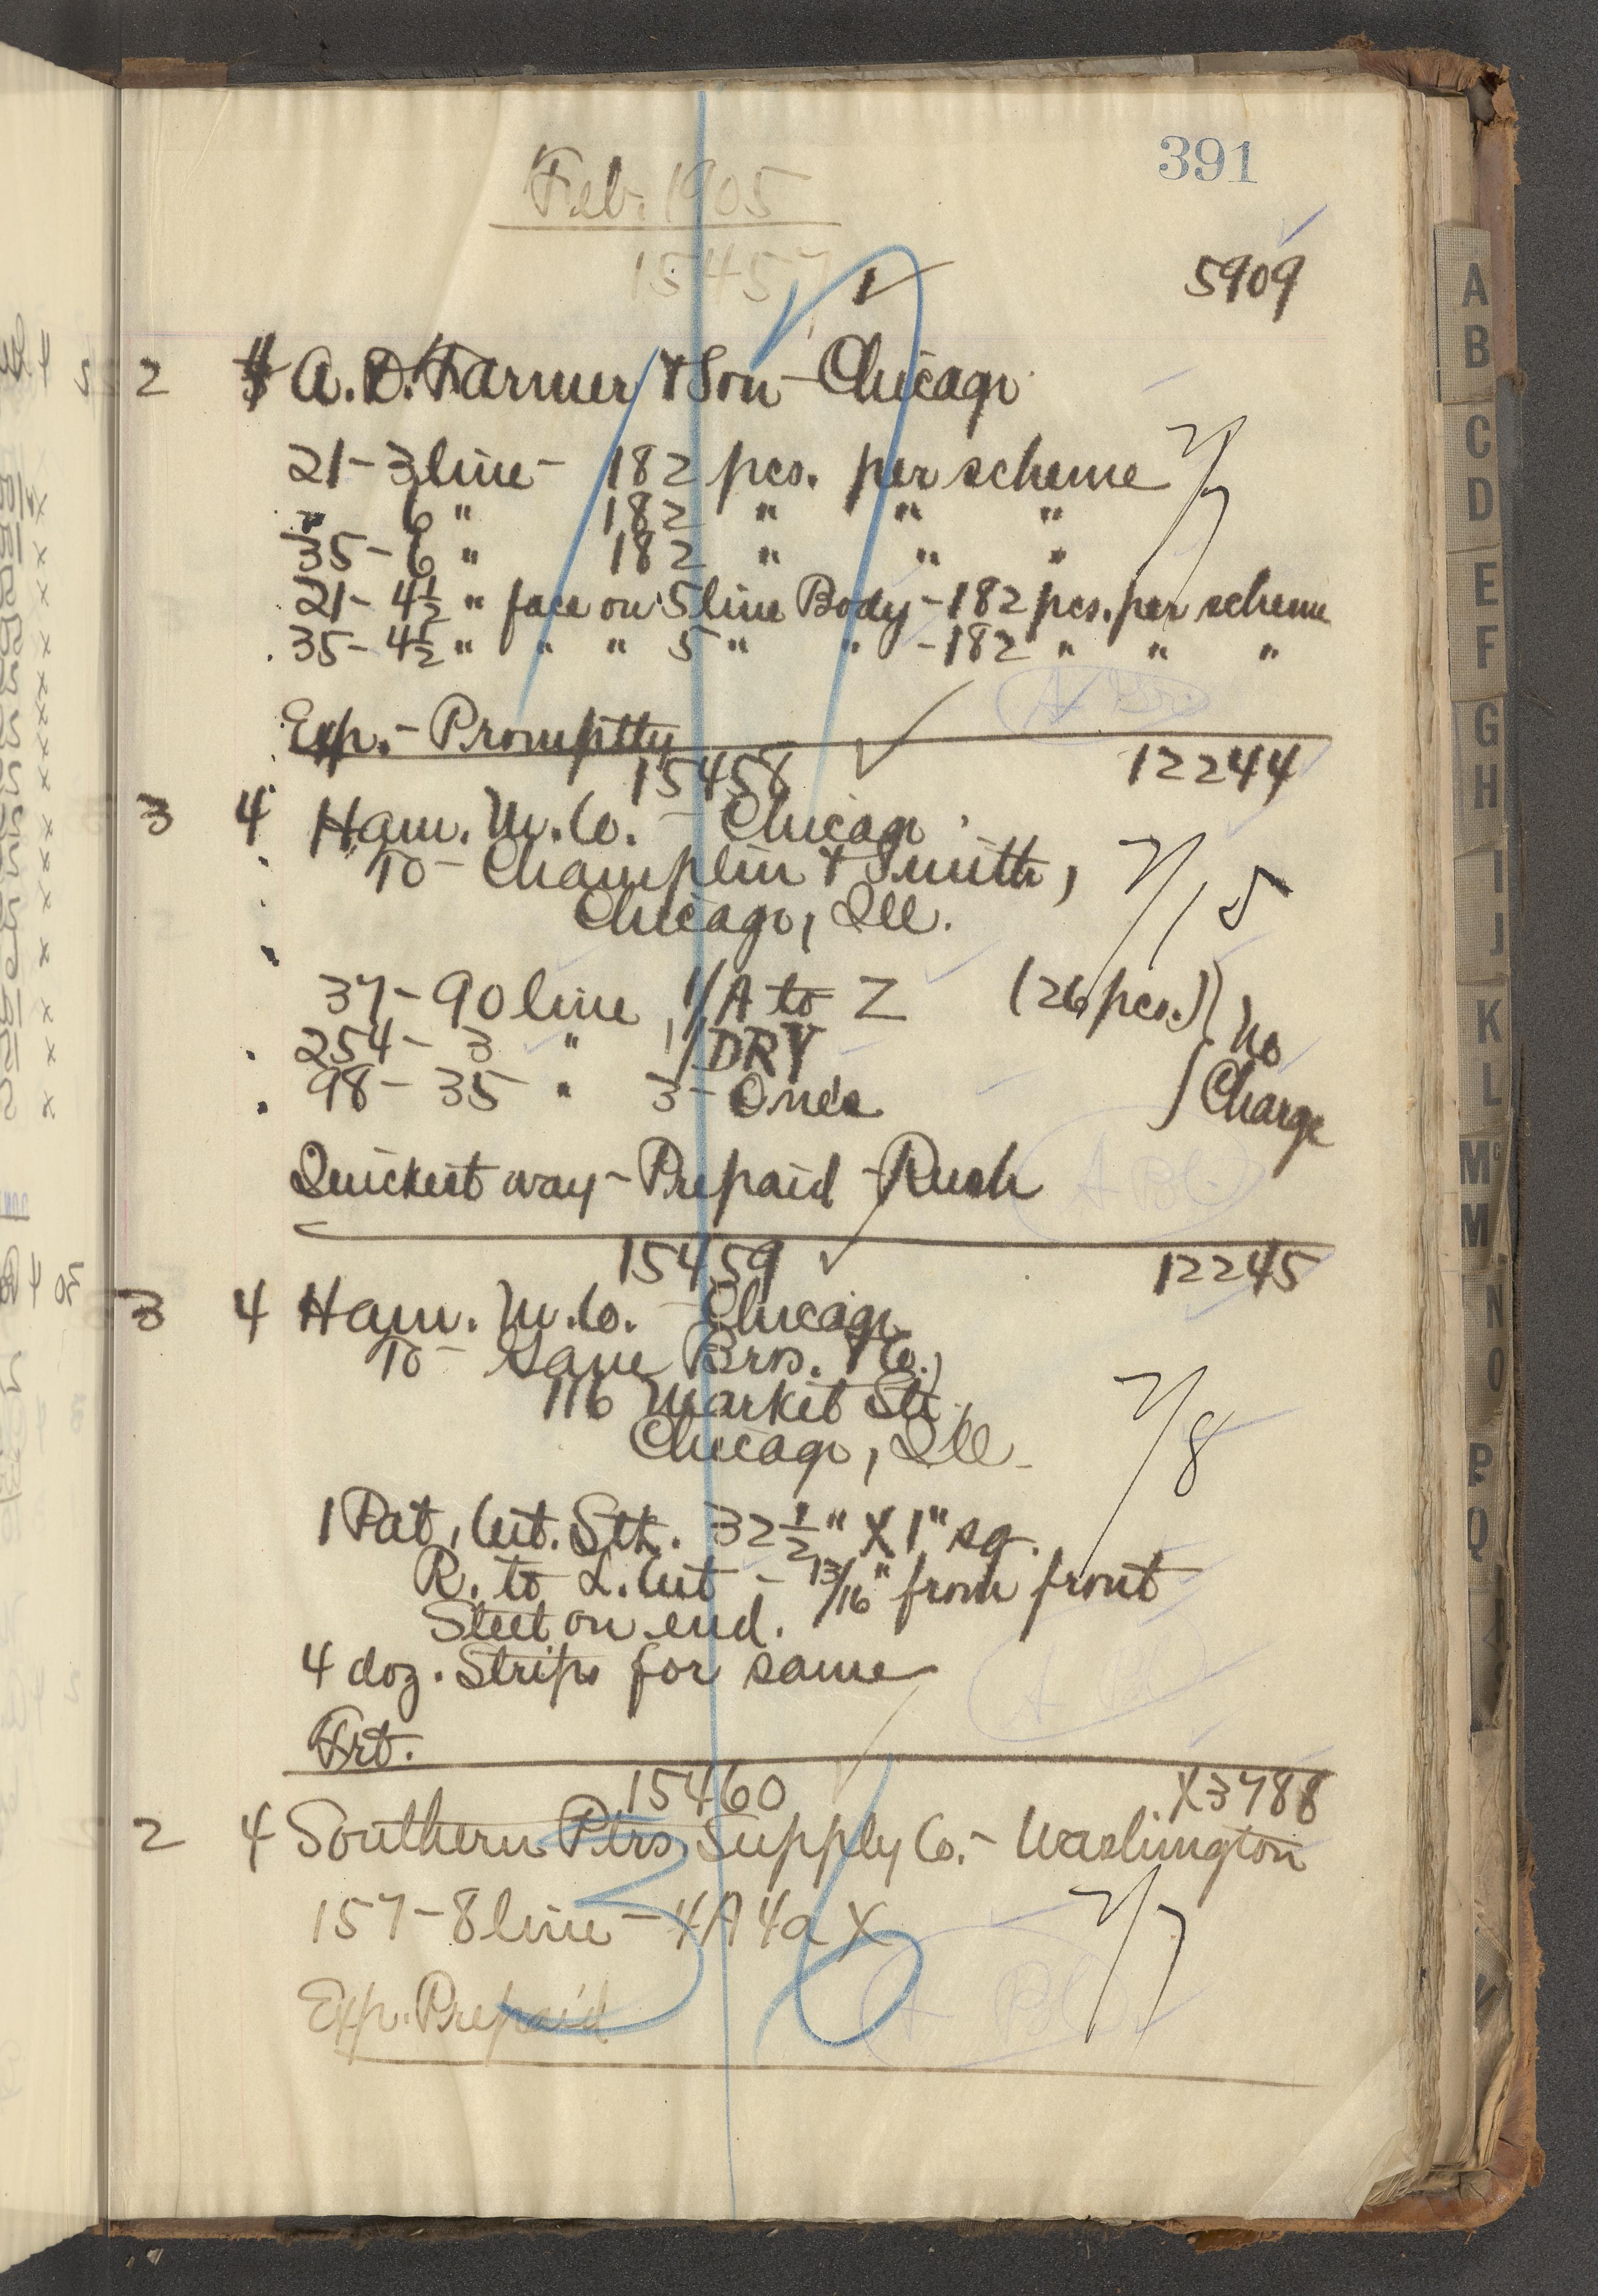 391
Feb. 1905
15457 5909
2 4 A. D. Farmer & Son - Chicago
21 - 3 line - 182 pcs. per scheme 2/7
" 6 " 182 " " "
35 - 6 " 182 " " "
21 - 4½ " face on 5 line Body - 182 pcs. per scheme
35 - 4½ " " " 5 " " - 182 " " "
Exp. - Promptly
15458 12244
3 4 Ham. M. Co. - Chicago
To - Champlin & Smith,
Chicago, Ill. 2/15
37 - 90 line 1/A to Z (26 pcs.) No
254 - 3 " 1/DRY
98 - 35 " 3 - One's Charge
Quickest way - Prepaid - Rush
15459 12245
3 4 Ham. M. Co. - Chicago
To - Gane Bros. & Co.,
116 Market St.,
Chicago, Ill. 2/8
1 Pat. Cut. Stk. 32½" X 1" sq.
R. to L. Cut - 13/16" from front
Steel on end.
4 doz. Strips for same
Frt.
15460 X3788
2 4 Southern Ptrs. Supply Co. - Washington
157 - 8 line - 4A 4a X 2/7
Exp. Prepaid
36
A
B
C
D
E
F
G
H
I
J
K
L
Mc
M
N
O
P
Q